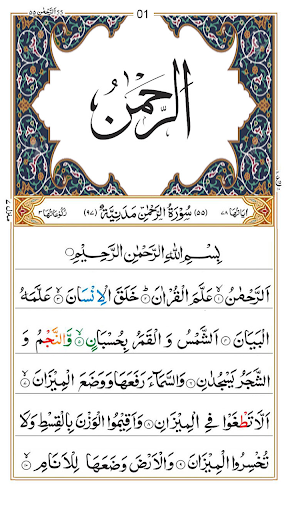 01
الرَّحْمٰنُ
اٰيَاتُهَا ٧٨ (٥٥) سُوْرَةُ الرَّحْمٰنِ مَدَنِيَّةٌ (٩٧) رُكُوْعَاتُهَا ٣
بِسْمِ اللهِ الرَّحْمٰنِ الرَّحِيْمِ
اَلرَّحْمٰنُ ۙ عَلَّمَ الْقُرْاٰنَ ؕ خَلَقَ الْاِنْسَانَ ۙ عَلَّمَهُ
الْبَيَانَ ۙ اَلشَّمْسُ وَ الْقَمَرُ بِحُسْبَانٍ ۙ وَّالنَّجْمُ وَ
الشَّجَرُ يَسْجُدٰنِ ۙ وَالسَّمَآءَ رَفَعَهَا وَوَضَعَ الْمِيْزَانَ ۙ
اَلَّا تَطْغَوْا فِي الْمِيْزَانِ ۙ وَاَقِيْمُوا الْوَزْنَ بِالْقِسْطِ وَلَا
تُخْسِرُوا الْمِيْزَانَ ۙ وَالْاَرْضَ وَضَعَهَا لِلْاَنَامِ ۙ